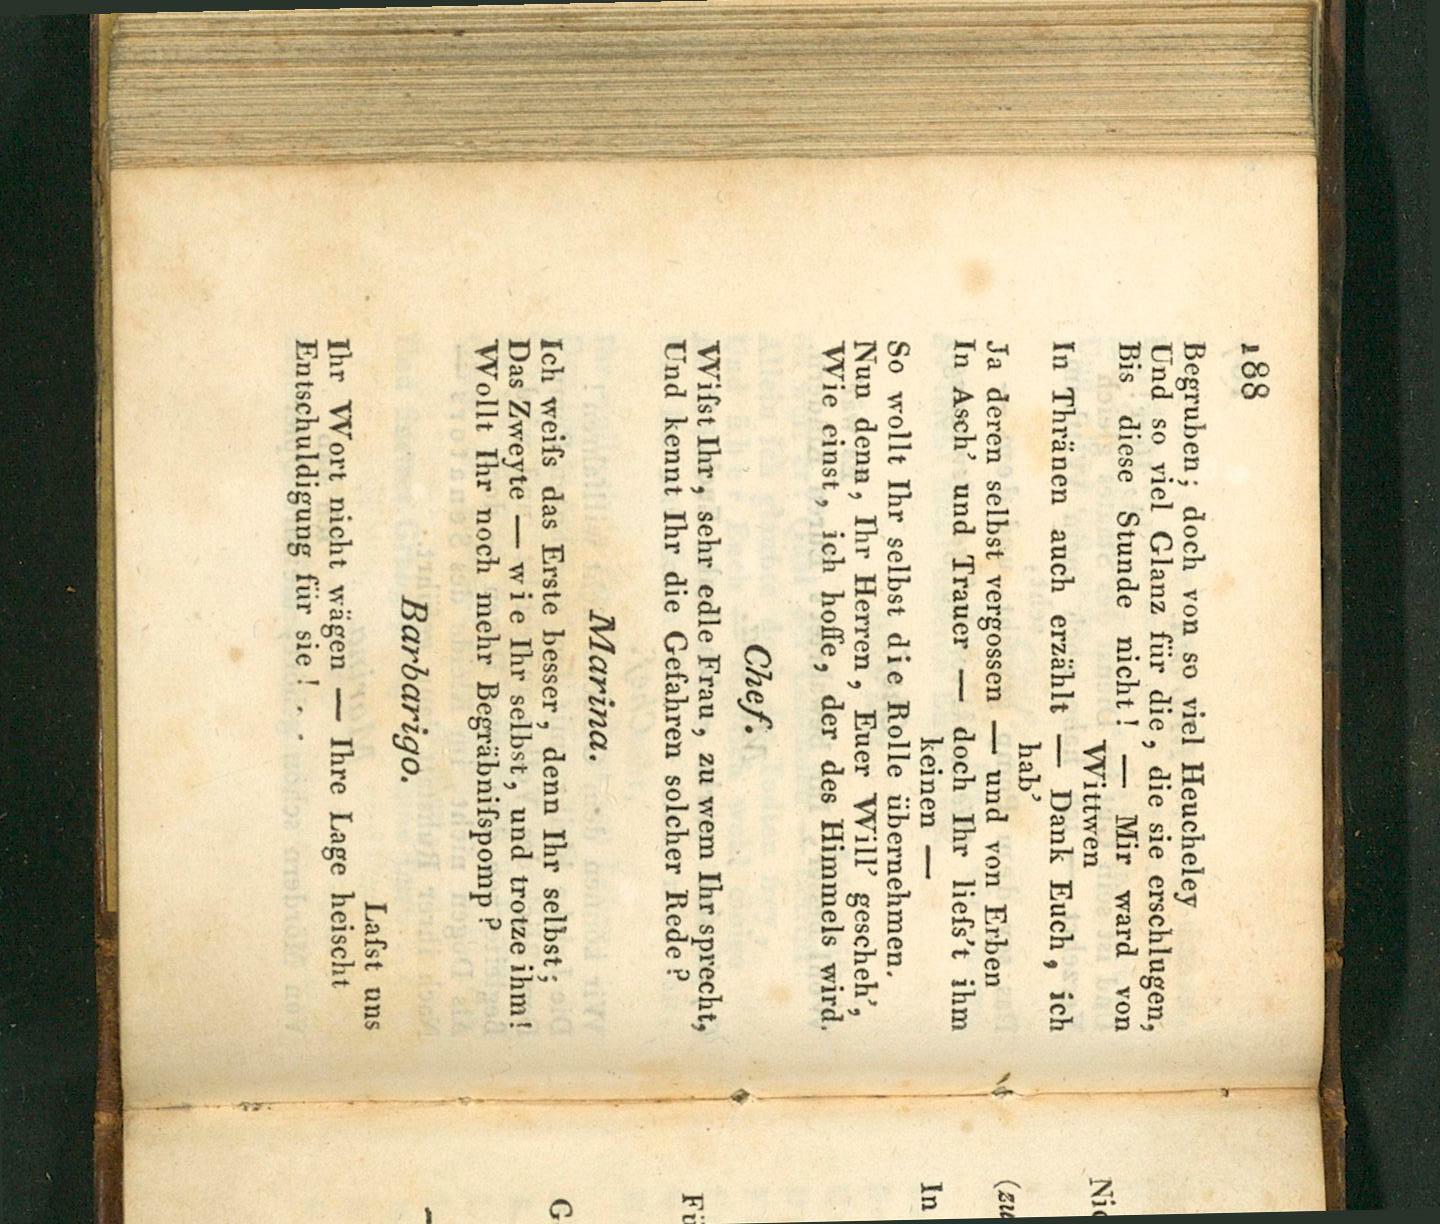 188
Begruben; doch von so viel Heucheley
Und so viel Glanz für die, die sie erschlugen,
Bis diese Stunde nicht! — Mir ward von
Wittwen
In Thränen auch erzählt — Dank Euch, ich
hab'
Ja deren selbst vergossen — und von Erben
In Asch' und Trauer — doch Ihr liefs't ihm
keinen —
So wollt Ihr selbst die Rolle übernehmen.
Nun denn, Ihr Herren, Euer Will' gescheh',
Wie einst, ich hoffe, der des Himmels wird.
Chef.
Wifst Ihr, sehr edle Frau, zu wem Ihr sprecht,
Und kennt Ihr die Gefahren solcher Rede?
Marina.
Ich weifs das Erste besser, denn Ihr selbst;
Das Zweyte — wie Ihr selbst, und trotze ihm!
Wollt Ihr noch mehr Begräbnifspomp?
Barbarigo.
Lafst uns
Ihr Wort nicht wägen — Ihre Lage heischt
Entschuldigung für sie!
Nic
(zu
In
Fü
G
—